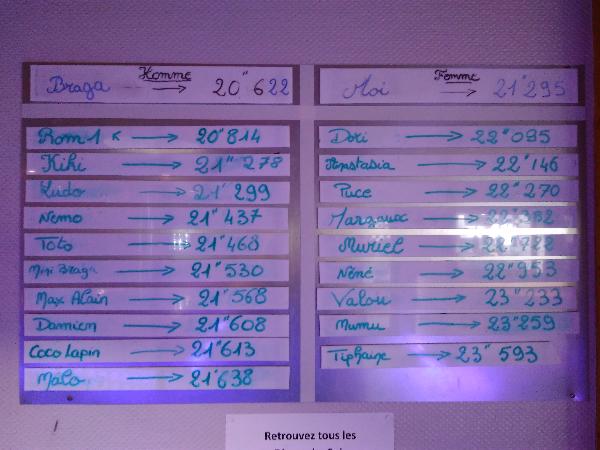 Homme
Braga → 20"622
Rom1 → 20"814
Kiki → 21"278
Ludo → 21"299
Nemo → 21"437
Toto → 21"468
Mini Braga → 21"530
Max Alain → 21"568
Damien → 21"608
Coco Lapin → 21"613
Malo → 21"638
Femme
→ 21"295
Dori → 22"095
Anastasia → 22"146
Puce → 22"270
Margaux →
Muriel → 22"722
Néné → 22"953
Valou → 23"233
Mumu → 23"259
Tiphaine → 23"593
Retrouvez tous les